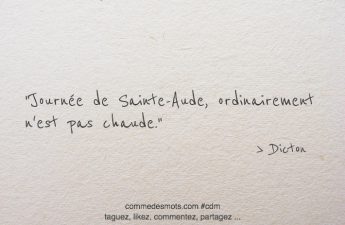 "Journée de Sainte-Aude, ordinairement
n'est pas chaude."
> Dicton
commedesmots.com #cdm
taguez, likez, commentez, partagez ...